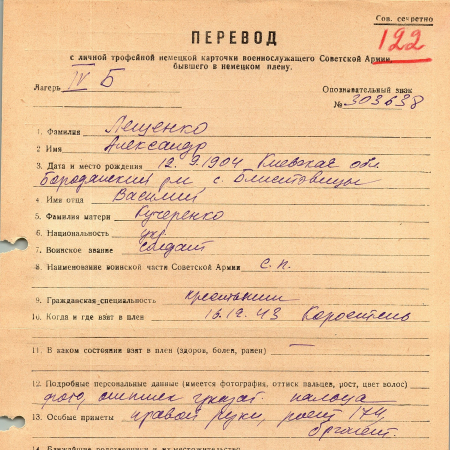 Сов. секретно
122
ПЕРЕВОД
с личной трофейной немецкой карточки военнослужащего Советской Армии,
бывшего в немецком плену.
Лагерь IV Б
Опознавательный знак
№ 303638
1. Фамилия Лещенко
2. Имя Александр
3. Дата и место рождения 12.9.1904 Киевская обл.
Бородянский р-н с.
4. Имя отца Василий
5. Фамилия матери Кучеренко
6. Национальность укр
7. Воинское звание солдат
8. Наименование воинской части Советской Армии с.п.
9. Гражданская специальность крестьянин
10. Когда и где взят в плен 13.12.43 Коростень
11. В каком состоянии взят в плен (здоров, болен, ранен) —
12. Подробные персональные данные (имеется фотография, оттиск пальцев, рост, цвет волос)
фото, оттиск указат. пальца
13. Особые приметы правой руки, рост 174,
брюнет.
14. Ближайшие родственники и их местожительство